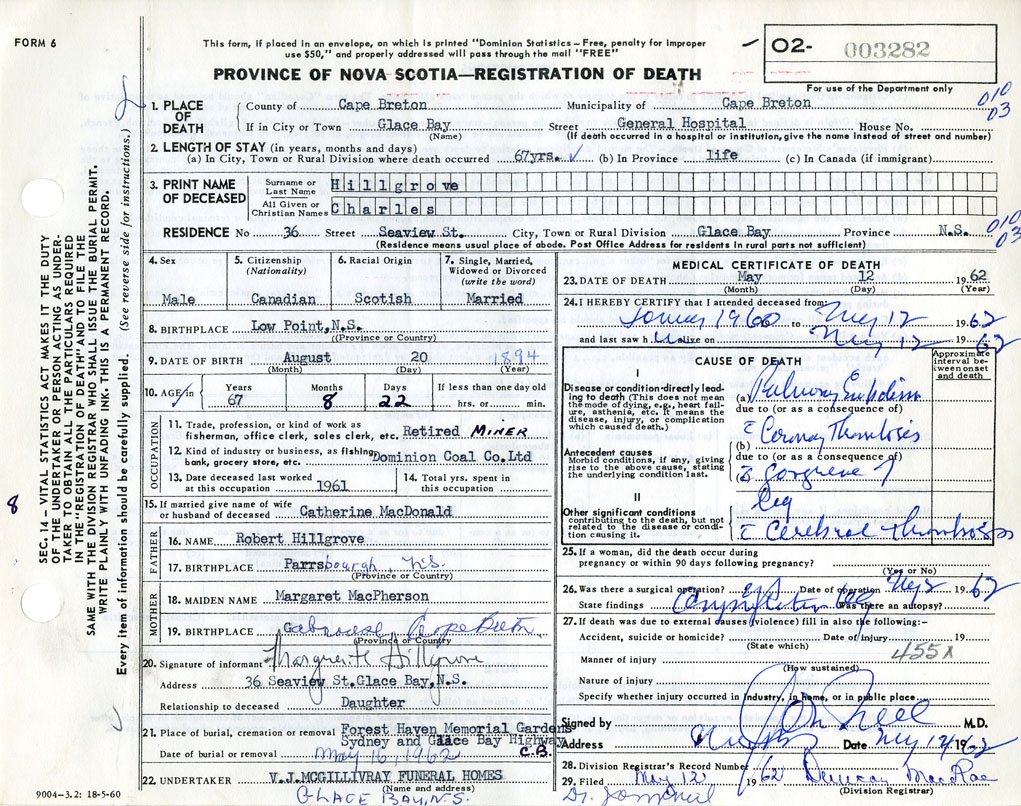 FORM 6
This form, if placed in an envelope, on which is printed "Dominion Statistics – Free, penalty for improper
use $50," and properly addressed will pass through the mail "FREE"
PROVINCE OF NOVA SCOTIA—REGISTRATION OF DEATH
02- 003282
For use of the Department only
010
03
1. PLACE OF DEATH
County of Cape Breton Municipality of Cape Breton
If in City or Town Glace Bay Street General Hospital House No.
(Name) (If death occurred in a hospital or institution, give the name instead of street and number)
2. LENGTH OF STAY (in years, months and days)
(a) In City, Town or Rural Division where death occurred 67yrs. ✓ (b) In Province life (c) In Canada (if immigrant)
3. PRINT NAME OF DECEASED
Surname or Last Name Hillgrove
All Given or Christian Names Charles
RESIDENCE No 36 Street Seaview St. City, Town or Rural Division Glace Bay Province N.S.
(Residence means usual place of abode. Post Office Address for residents in rural parts not sufficient)
010
03
4. Sex
Male
5. Citizenship (Nationality)
Canadian
6. Racial Origin
Scotish
7. Single, Married, Widowed or Divorced (write the word)
Married
8. BIRTHPLACE Low Point,N.S.
((Province or Country)
9. DATE OF BIRTH August 20 1894
(Month) (Day) (Year)
10. AGE in Years Months Days If less than one day old
67 8 22 hrs. or min.
OCCUPATION
11. Trade, profession, or kind of work as
fisherman, office clerk, sales clerk, etc. Retired MINER
12. Kind of industry or business, as fishing,
bank, grocery store, etc. Dominion Coal Co.Ltd
13. Date deceased last worked at this occupation 1961
14. Total yrs. spent in this occupation
15. If married give name of wife
or husband of deceased Catherine MacDonald
FATHER
16. NAME Robert Hillgrove
17. BIRTHPLACE Parrsbourgh, N.S.
(Province or Country)
MOTHER
18. MAIDEN NAME Margaret MacPherson
19. BIRTHPLACE Cape Breton
(Province or Country)
20. Signature of informant Marguerite Hillgrove
Address 36 Seaview St.Glace Bay,N.S.
Relationship to deceased Daughter
21. Place of burial, cremation or removal Forest Haven Memorial Gardens
Sydney and Glace Bay Highway
Date of burial or removal May 16, 1962 C.B.
22. UNDERTAKER V.J.MCGILLIVRAY FUNERAL HOMES
(Name and address)
GLACE BAY, N.S.
9004–3.2: 18-5-60
MEDICAL CERTIFICATE OF DEATH
23. DATE OF DEATH May 12 1962
(Month) (Day) (Year)
24. I HEREBY CERTIFY that I attended deceased from:
1960 to May 12 1962
and last saw h alive on May 12 1962
CAUSE OF DEATH
Approximate interval between onset and death
I
Disease or condition directly leading to death (This does not mean the mode of dying, e.g., heart failure, asthenia, etc. It means the disease, injury, or complication which caused death.)
(a) Pulmonary Embolism
due to (or as a consequence of)
(b) Coronary Thrombosis
due to (or as a consequence of)
Antecedent causes
Morbid conditions, if any, giving rise to the above cause, stating the underlying condition last.
(c) Gangrene of
Leg
II
Other significant conditions
contributing to the death, but not related to the disease or condition causing it.
Cerebral thrombosis
25. If a woman, did the death occur during
pregnancy or within 90 days following pregnancy?
(Yes or No)
26. Was there a surgical operation? Date of operation May 2 1962
State findings Amputation Leg Was there an autopsy?
27. If death was due to external causes (violence) fill in also the following:-
Accident, suicide or homicide? Date of injury 19
(State which)
455X
Manner of injury
(How sustained)
Nature of injury
Specify whether injury occurred in industry, in home, or in public place
Signed by M.D.
Address Date May 12/1962
28. Division Registrar's Record Number
29. Filed May 12 1962 Duncan MacRae
(Division Registrar)
SEC. 14 – VITAL STATISTICS ACT MAKES IT THE DUTY
OF THE UNDERTAKER OR PERSON ACTING AS UNDER-
TAKER TO OBTAIN ALL THE PARTICULARS REQUIRED
IN THE "REGISTRATION OF DEATH" AND TO FILE THE
SAME WITH THE DIVISION REGISTRAR WHO SHALL ISSUE THE BURIAL PERMIT.
WRITE PLAINLY WITH UNFADING INK. THIS IS A PERMANENT RECORD.
Every item of information should be carefully supplied. (See reverse side for instructions.)
8